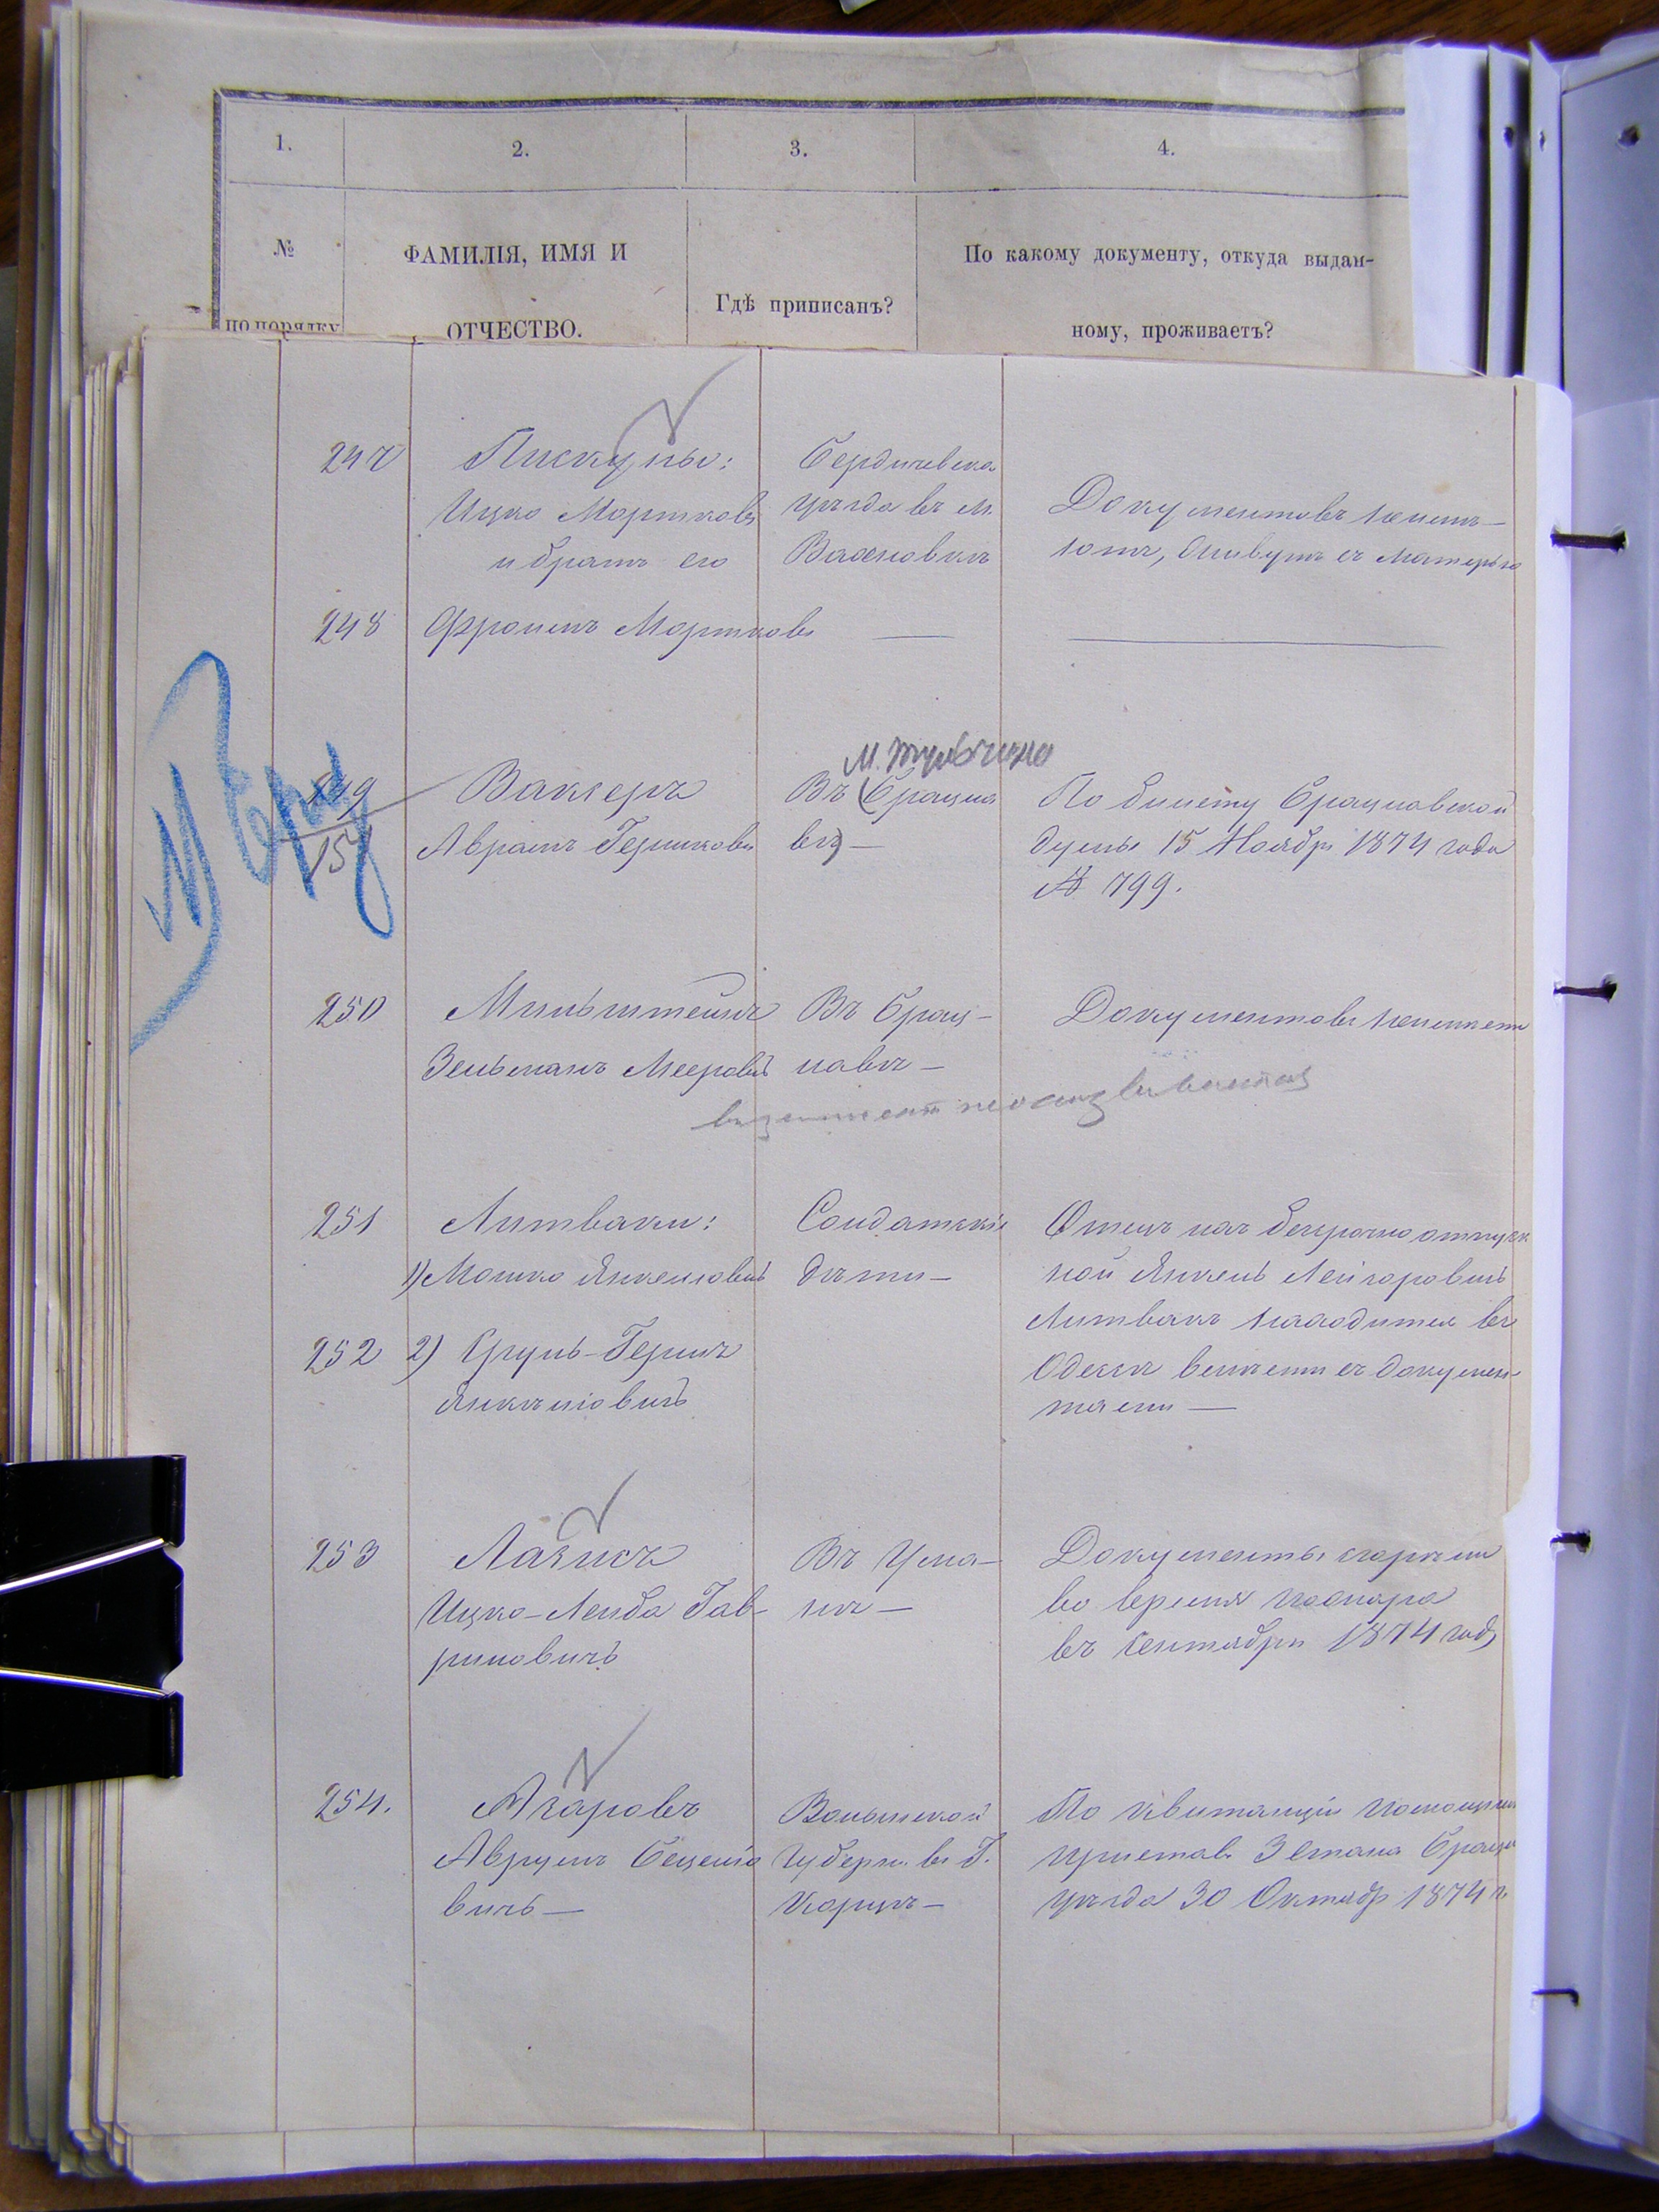 1.
2.
3.
4.
№
по порядку
ФАМИЛІЯ, ИМЯ И
ОТЧЕСТВО.
Гдѣ приписанъ?
По какому документу, откуда выдан-
ному, проживаетъ?
247
Пискуны:
Ицко Мортковъ
и братъ его
Бердичевска
уѣзда въ м.
Вахновкѣ
Документовъ неимѣ-
ютъ, живутъ съ матерью
248
Фроимъ Мортковъ
—
—
249
151
Ваксеръ
Аврамъ Гершковъ
м. Тульчина
Въ (Брацла
вѣ) —
По билету Брацлавской
Думы 15 Ноября 1874 года
№ 799.
250
Мильштейнъ
Зельманъ Мееровъ
Въ Брац-
лавѣ —
Документовъ неимѣетъ
251
Литваки:
1) Мошко Янкелевичъ
Солдатскіе
дѣти —
Отецъ ихъ безсрочноотпуск
ной Янкель Лейзоровичъ
Литвакъ находится въ
Одессѣ вмѣстѣ съ докумен-
тами —
252
2) Сруль-Гершъ
Янкелевичъ
253
Лазисъ
Ицко-Лейба Гав-
риловичъ
Въ Ума-
нѣ —
Документы сгорѣли
во время пожара
въ Сентябрѣ 1874 года
254.
Азаровъ
Аврумъ
вичъ —
Волынской
Губерн. въ Г.
Корцѣ —
По квитанціи помощника
пристав. 3 стана Брацл
уѣзда 30 Октяб 1874 г